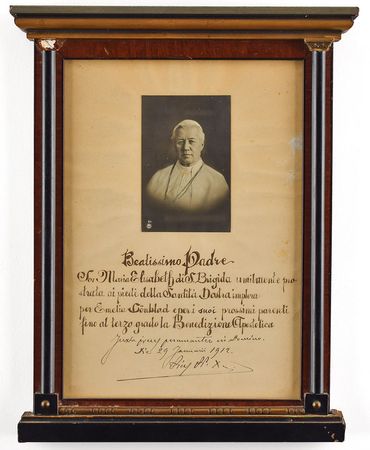 Beatissimo Padre
Sor Maria Elisabeth di S. Brigida umilmente pro
strata ai piedi della Santità Vostra implora
per Emelia Lönblad e per i suoi prossimi parenti
fino al terzo grado la Benedizione Apostolica
Juxta preces peramanter in Domino.
Die 29 Januarii 1912.
Pius PP. X